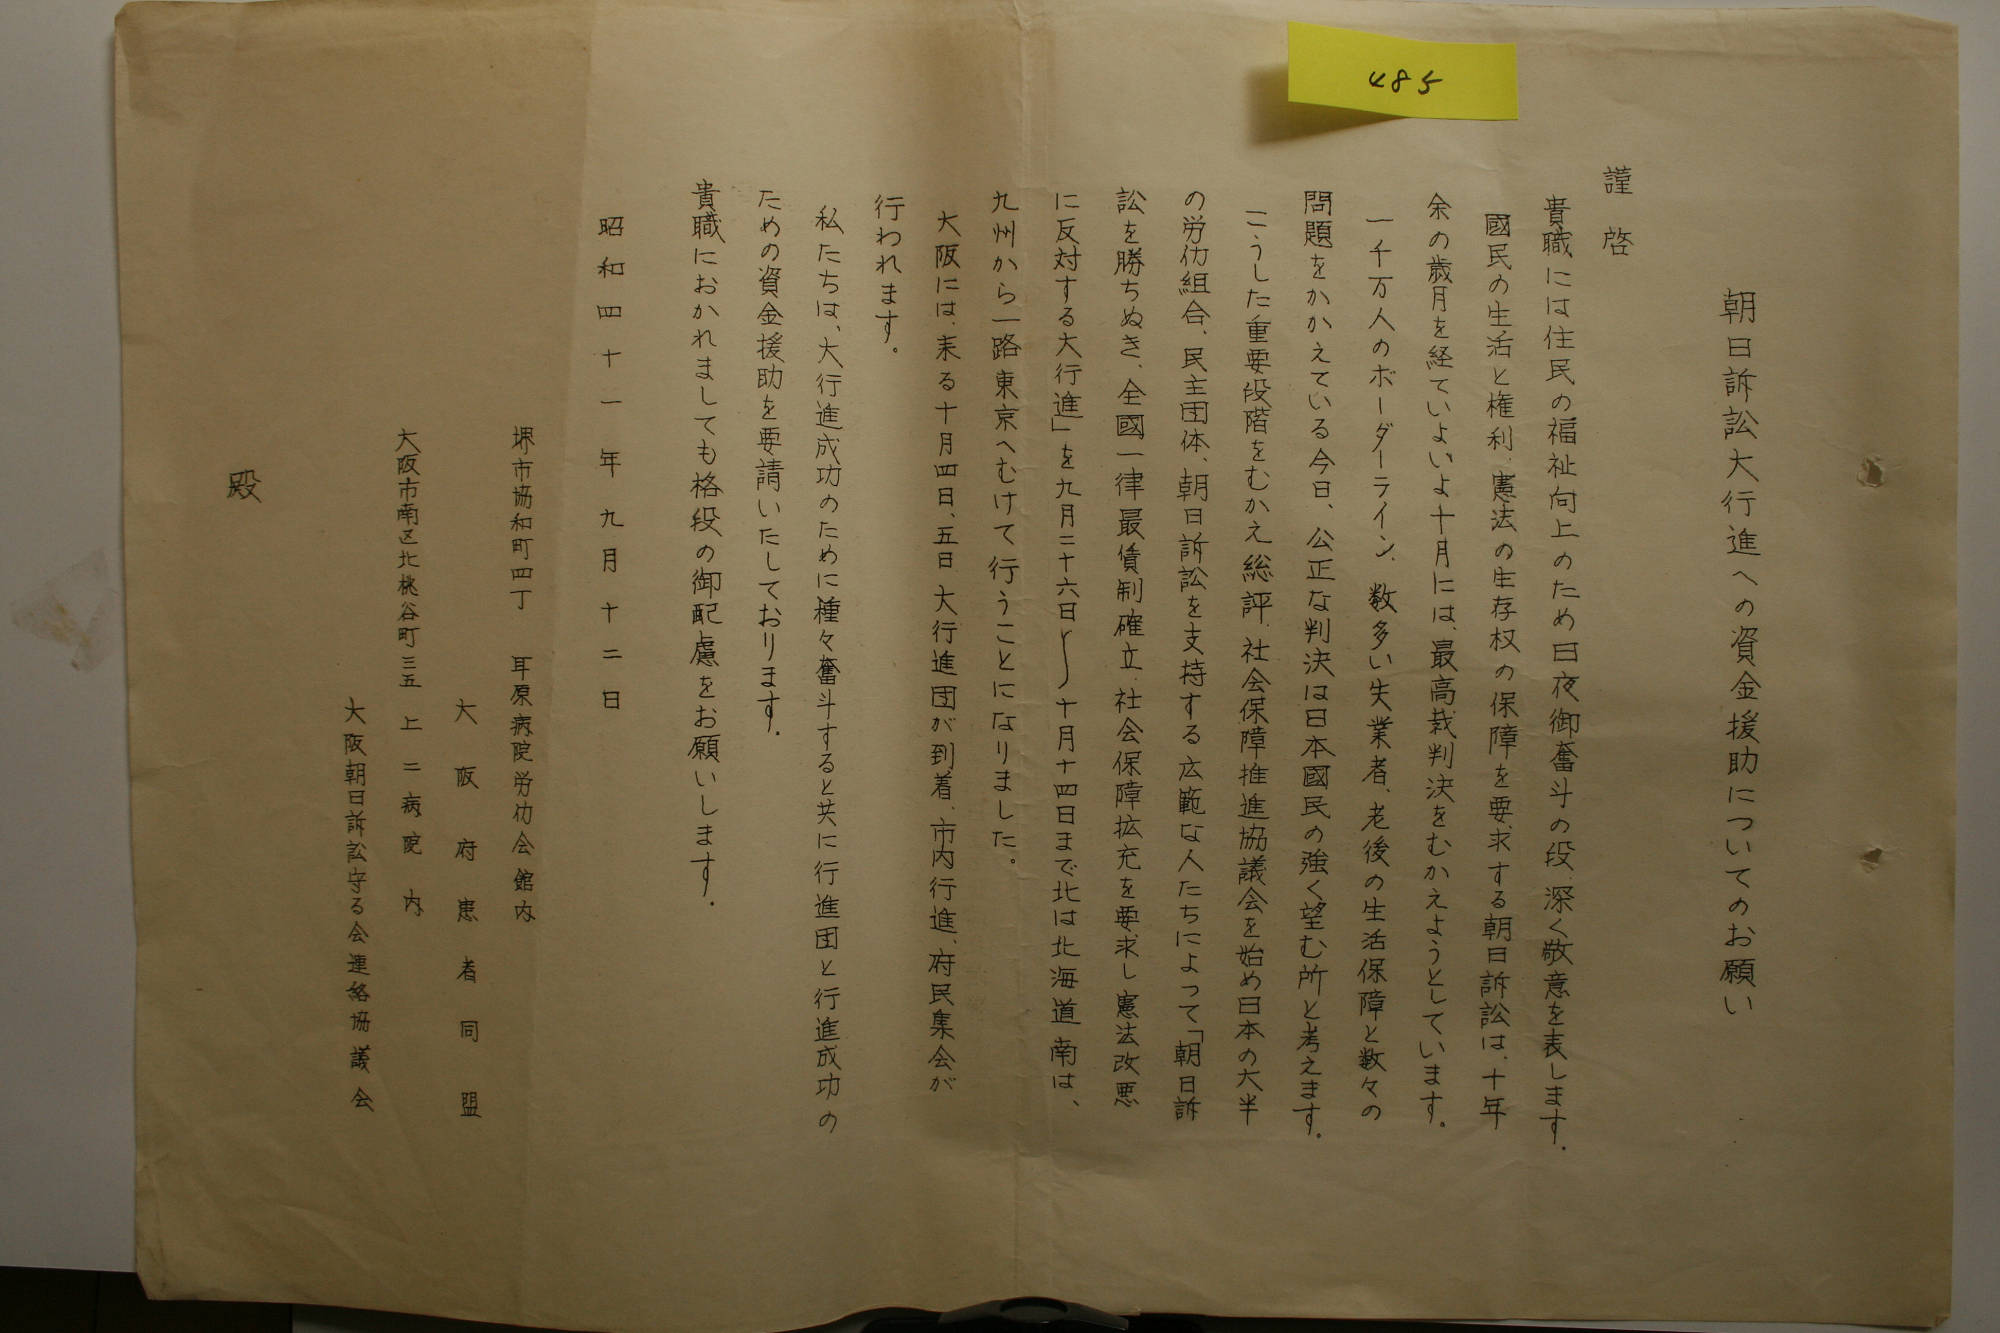 485
朝日訴訟大行進への資金援助についてのお願い
謹啓
貴職には住民の福祉向上のため日夜御奮斗の段、深く敬意を表します。
國民の生活と権利、憲法の生存权の保障を要求する朝日訴訟は、十年
余の歳月を経ていよいよ十月には、最高裁判決をむかえようとしています。
一千万人のボーダーライン、数多い失業者、老後の生活保障と数々の
問題をかかえている今日、公正な判決は日本國民の強く望む所と考えます。
こうした重要段階をむかえ総評、社会保障推進協議会を始め日本の大半
の労仂組合、民主団体、朝日訴訟を支持する広範な人たちによって「朝日訴
訟を勝ちぬき、全國一律最賃制確立、社会保障拡充を要求し憲法改悪
に反対する大行進」を九月二十六日〜十月十四日まで北は北海道南は、
九州から一路東京へむけて行うことになりました。
大阪には、来る十月四日、五日大行進団が到着、市内行進、府民集会が
行われます。
私たちは、大行進成功のために種々奮斗すると共に行進団と行進成功の
ための資金援助を要請いたしております。
貴職におかれましても格段の御配慮をお願いします。
昭和四十一年九月十二日
堺市協和町四丁　耳原病院労仂会館内
大阪府患者同盟
大阪市南区北桃谷町三五　上二病院内
大阪朝日訴訟守る会連絡協議会
殿